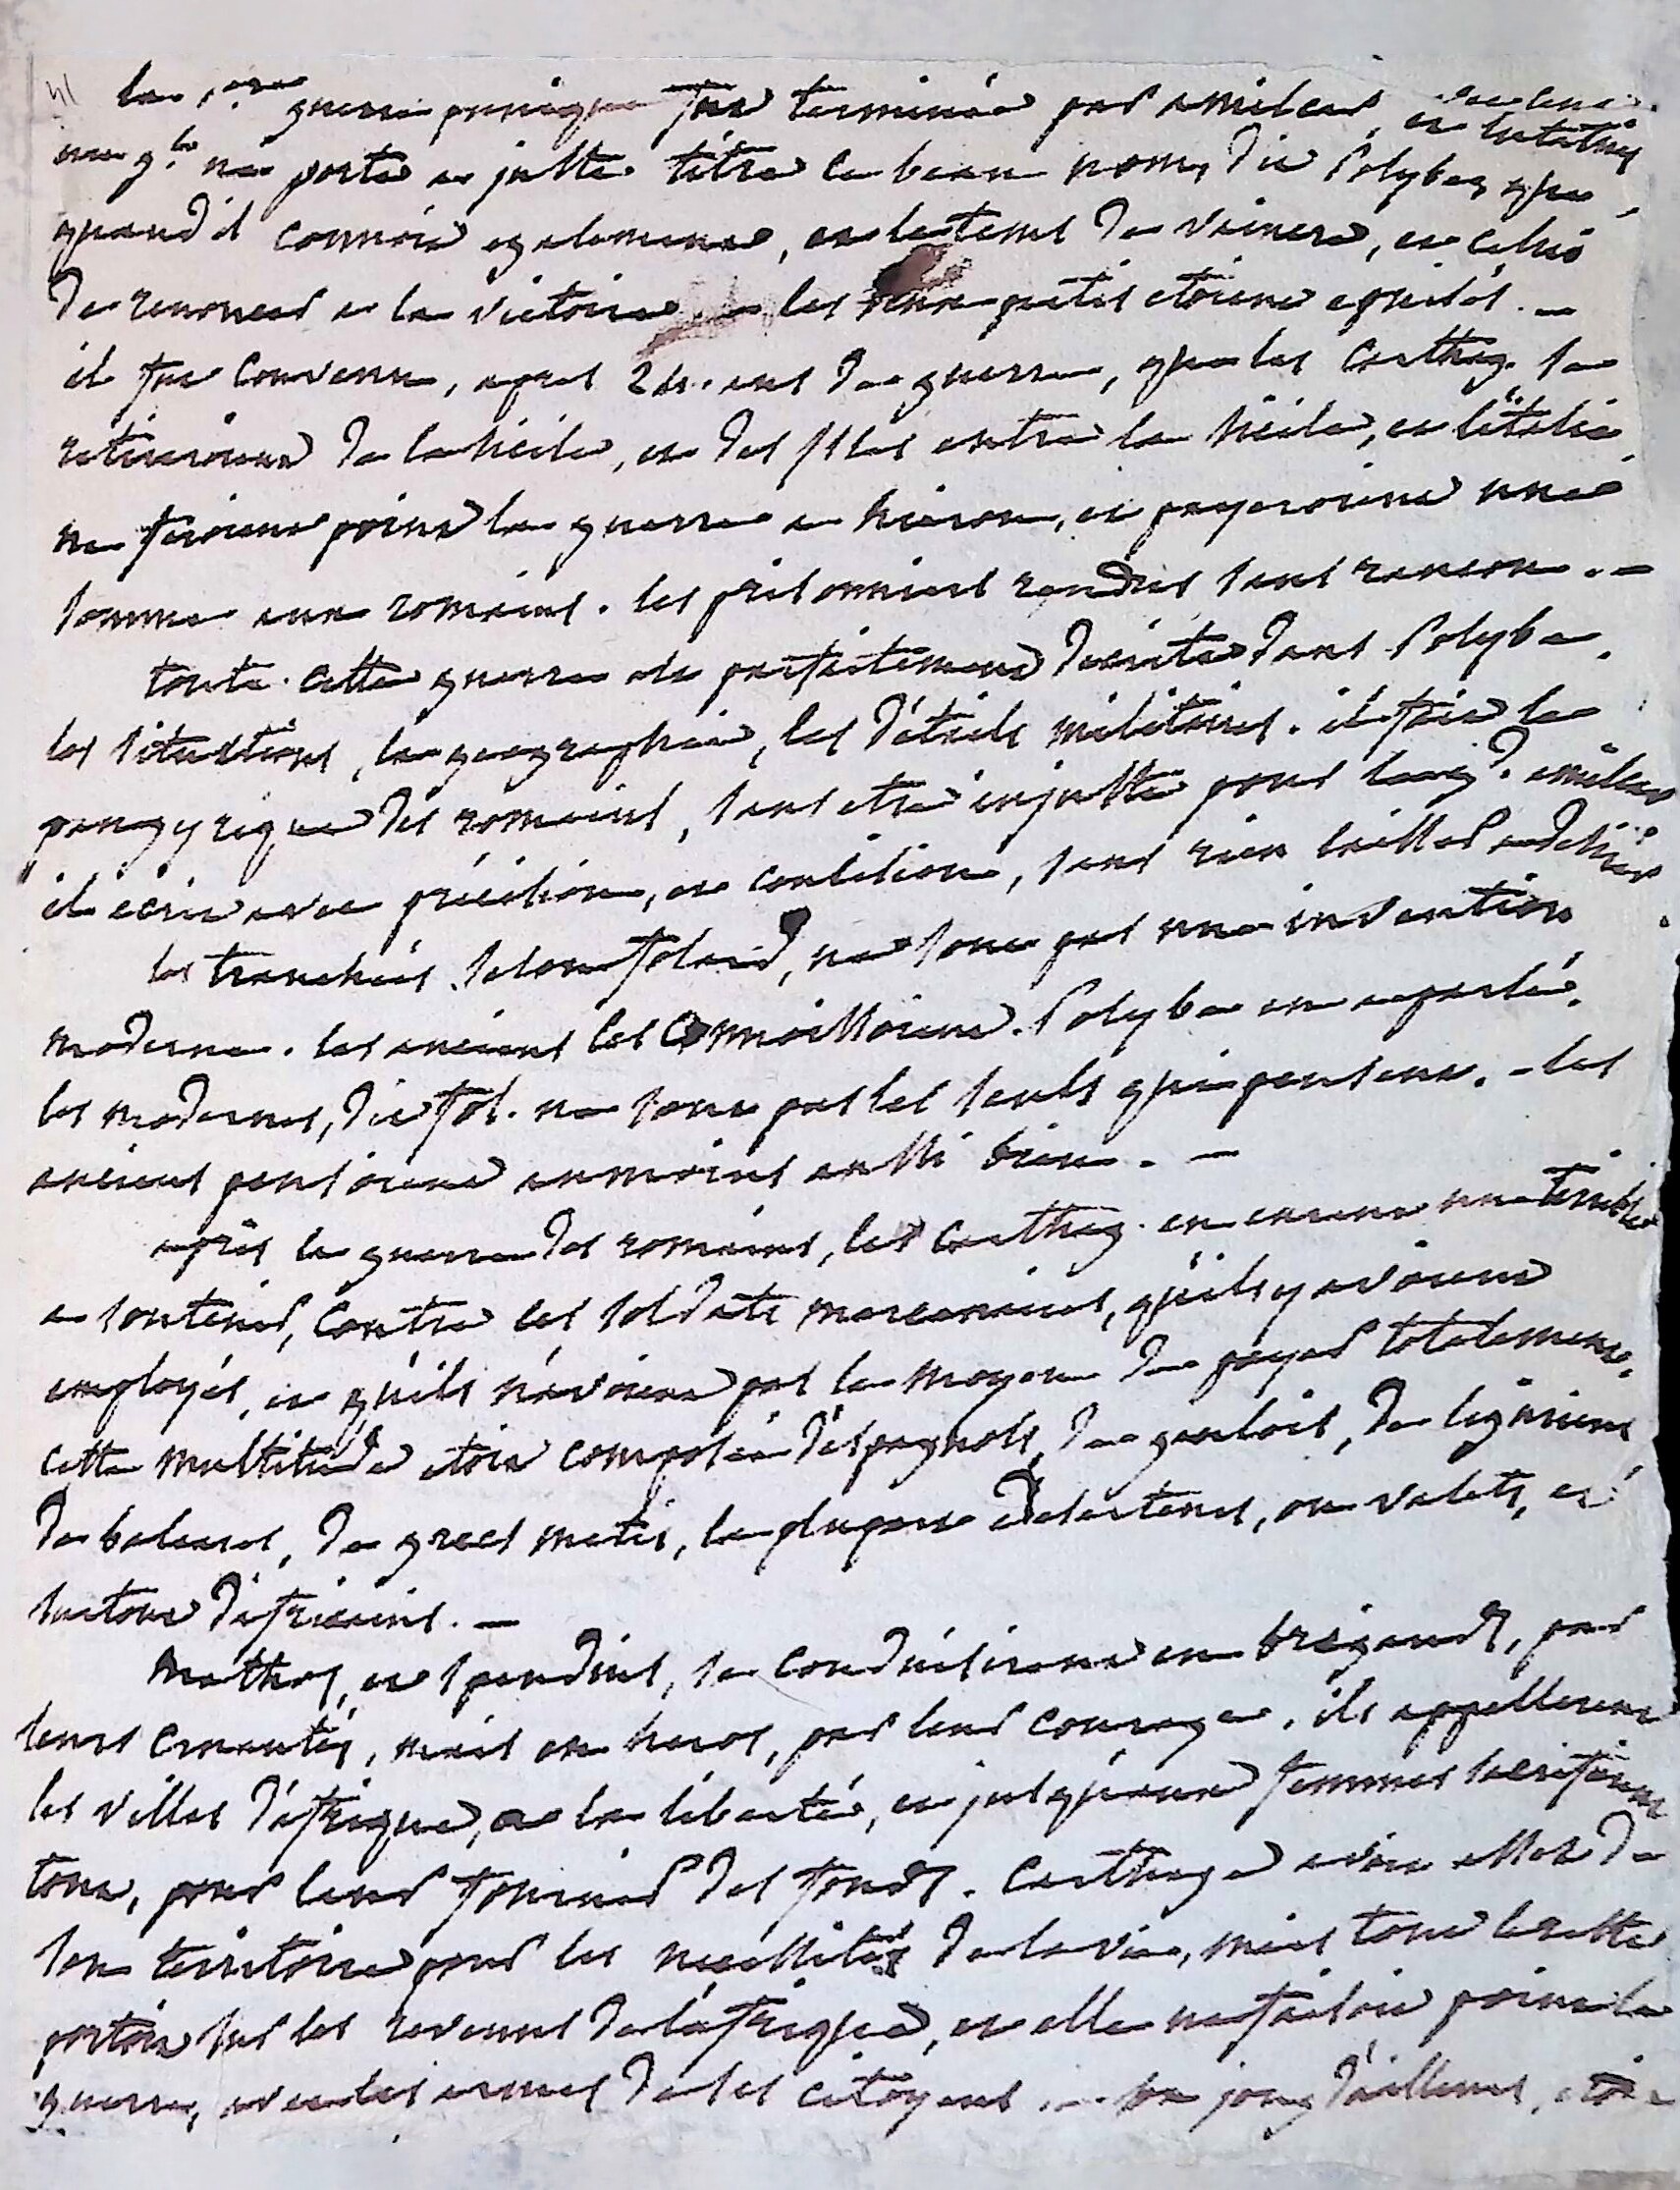 la 1ere guerre punique fut terminée par amilcar, et lutatius
un gal ne porte a juste titre ce beau nom, dit Polybe, que
quand il connoit egalement, et le tems de vaincre, et celui
de renoncer a la victoire les deux partis etoient epuisés. —
il fut convenu, apres 24. ans de guerre, que les Carthag. se
retireroient de la Sicile, et des isles entre la Sicile, et l'italie
ne feroient point la guerre a hieron, et payeroient une
somme aux romains. les prisonniers rendus sans rancon. —
toute cette guerre est parfaitement decrite dans Polybe.
les situations, la geographie, les détails militaires. il fait le
panegyrique des romains, sans etre injuste pour le gd. amilcar
il ecrit avec précision, et concision, sans rien laisser a desirer
les tranchées selon folard, ne sont pas une invention
moderne. les anciens les connoissoient. Polybe en a parlé.
les modernes, dit fol. ne sont pas les seuls qui pensent. – les
anciens pensoient au moins aussi bien. —
après la guerre des romains, les Carthag. en eurent une terrible
a soutenir, contre les soldats mercenaires, qu'ils y avoient
employés, et qu'ils n'avoient pas le moyen de payer totalement.
cette multitude etoit composée d'espagnols, de gaulois, de liguriens
de balears, de grecs metis, la plupart deserteurs, ou valets, et
surtout d'africains. —
Mathos, et spendius, se conduisirent en brigands, par
leurs cruautés, mais en heros, par leur courage. ils appellerent
les villes d'afrique, a la liberté, et jusqu'aux femmes sacrifierent
tout, pour leur fournir des fonds. Carthage avoit assez de
son territoire pour les necessités de la vie, mais tout le reste
portoit sur les revenus de l'afrique, et elle ne faisoit point la
guerre, avec les armes de ses citoyens .... son joug d'ailleurs, etoit